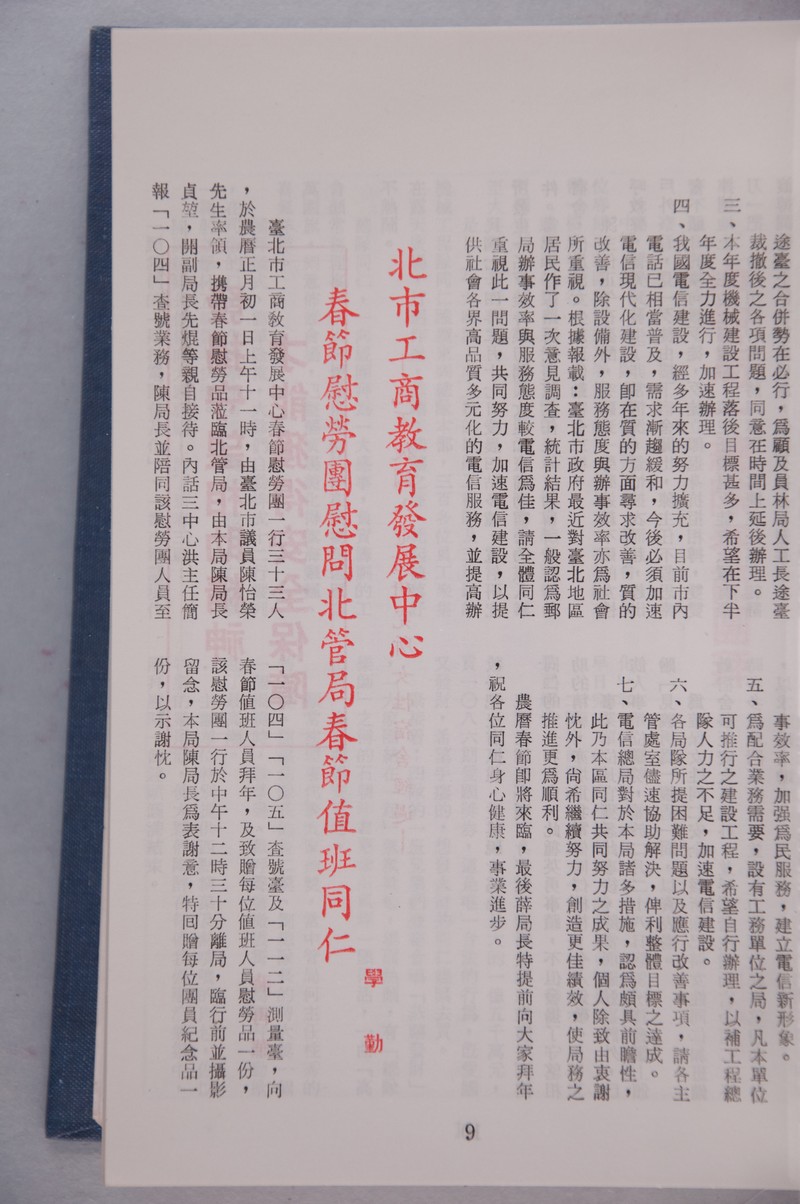 途臺之合併勢在必行，爲顧及員林局人工長途臺
裁撤後之各項問題，同意在時間上延後辦理。
三、本年度機械建設工程落後目標甚多，希望在下半
年度全力進行，加速辦理。
四、我國電信建設，經多年來的努力擴充，目前市內
電話已相當普及，需求漸趨緩和，今後必須加速
電信現代化建設，卽在質的方面尋求改善，質的
改善，除設備外，服務態度與辦事效率亦爲社會
所重視。根據報載：臺北市政府最近對臺北地區
居民作了一次意見調查，統計結果，一般認爲郵
局辦事效率與服務態度較電信爲佳，請全體同仁
重視此一問題，共同努力，加速電信建設，以提
供社會各界高品質多元化的電信服務，並提高辦
事效率，加强爲民服務，建立電信新形象。
五、爲配合業務需要，設有工務單位之局，凡本單位
可推行之建設工程，希望自行辦理，以補工程總
隊人力之不足，加速電信建設。
六、各局隊所提困難問題以及應行改善事項，請各主
管處室儘速協助解決，俾利整體目標之達成。
七、電信總局對於本局諸多措施，認爲頗具前瞻性，
此乃本區同仁共同努力之成果，個人除致由衷謝
忱外，尙希繼續努力，創造更佳績效，使局務之
推進更爲順利。
農曆春節卽將來臨，最後薛局長特提前向大家拜年
，祝各位同仁身心健康，事業進步。
北市工商教育發展中心
春節慰勞團慰問北管局春節值班同仁
學勤
臺北市工商敎育發展中心春節慰勞團一行三十三人
，於農曆正月初一日上午十一時，由臺北市議員陳怡榮
先生率領，携帶春節慰勞品蒞臨北管局，由本局陳局長
貞堃，關副局長先焜等親自接待。內話三中心洪主任簡
報「一〇四」查號業務，陳局長並陪同該慰勞團人員至
「一〇四」「一〇五」查號臺及「一一二」測量臺，向
春節值班人員拜年，及致贈每位值班人員慰勞品一份，
該慰勞團一行於中午十二時三十分離局，臨行前並攝影
留念，本局陳局長爲表謝意，特回贈每位團員紀念品一
份，以示謝忱。
9